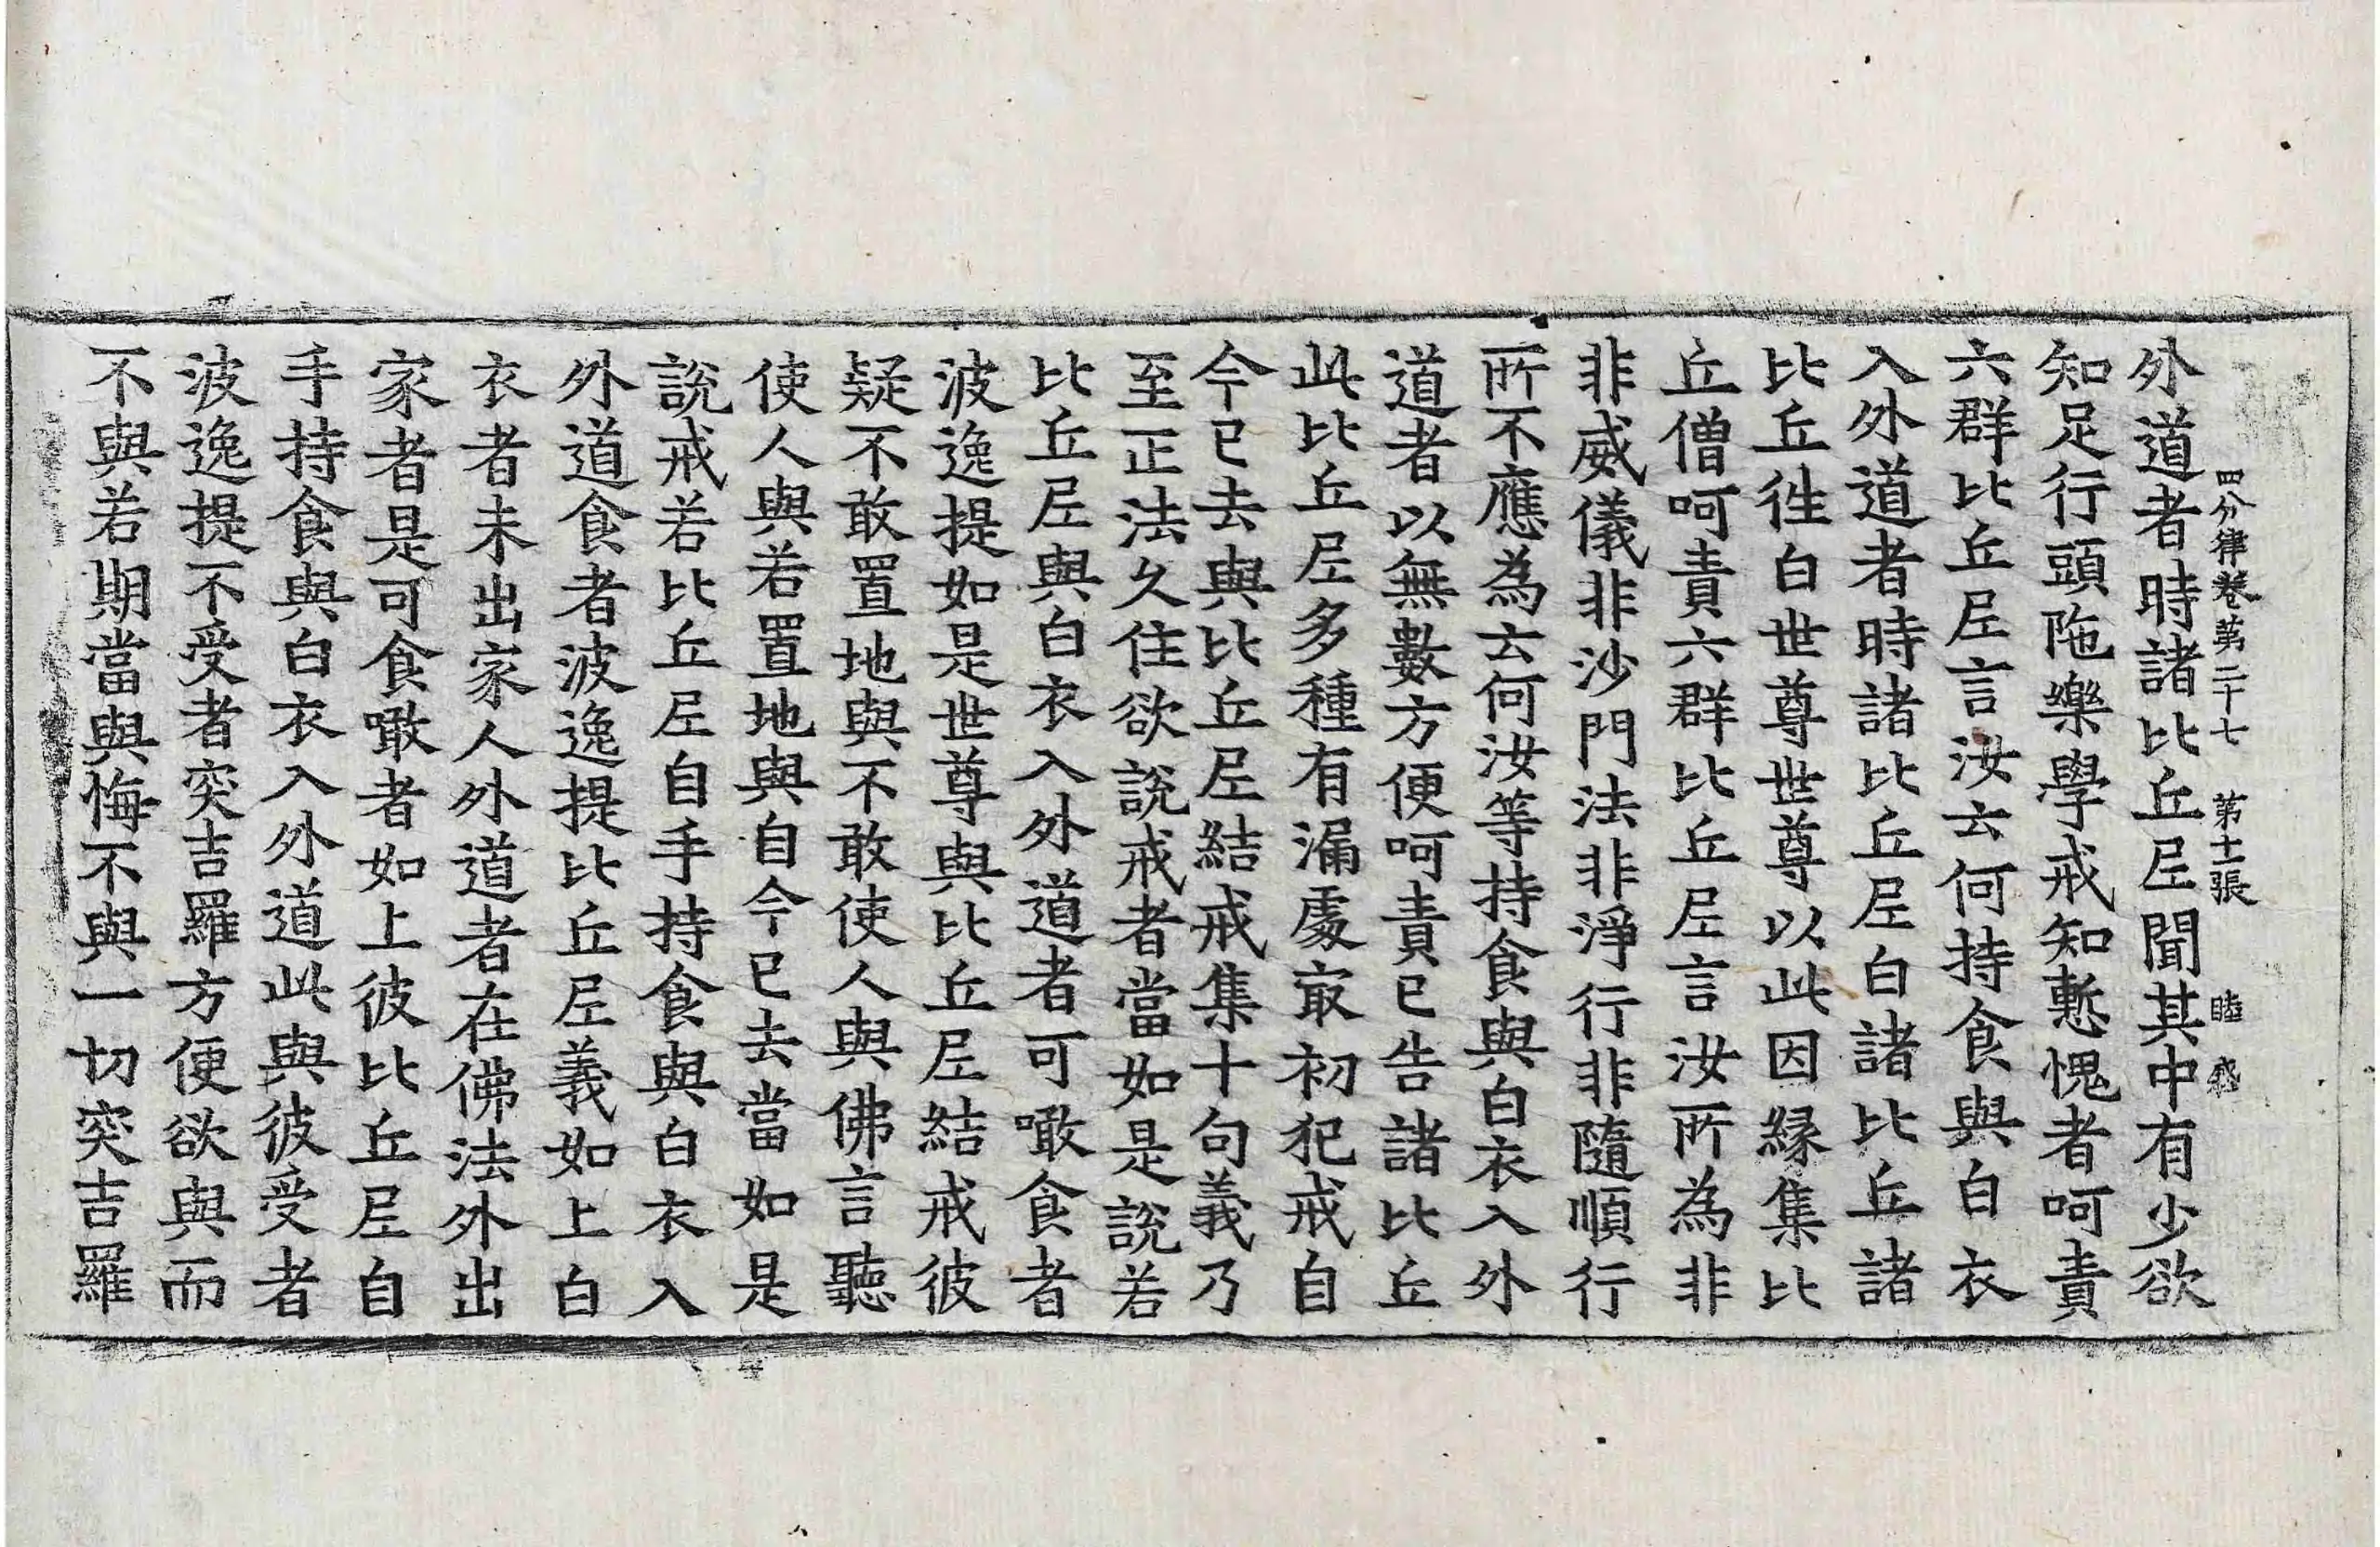 外道者時諸比丘𡰱聞其中有少欲
四分律卷第二十七 第十一張 睦
知足行頭陁樂學戒知慙愧者呵責
六群比丘𡰱言汝云何持食與白衣
入外道者時諸比丘𡰱白諸比丘諸
比丘徃白世尊世尊以此因縁集比
丘僧呵責六群比丘𡰱言汝所為非
非威儀非沙門法非淨行非隨順行
所不應為云何汝等持食與白衣入外
道者以無數方便呵責已告諸比丘
此比丘𡰱多種有漏處㝡初犯戒自
今已去與比丘𡰱結戒集十句義乃
至正法久住欲說戒者當如是說若
比丘𡰱與白衣入外道者可噉食者
波逸提如是世尊與比丘𡰱結戒彼
疑不敢置地與不敢使人與佛言聽
使人與若置地與自今已去當如是
說戒若比丘𡰱自手持食與白衣入
外道食者波逸提比丘𡰱義如上白
衣者未出家人外道者在佛法外出
家者是可食噉者如上彼比丘𡰱自
手持食與白衣入外道此與彼受者
波逸提不受者突吉羅方便欲與而
不與若期當與悔不與一切突吉羅